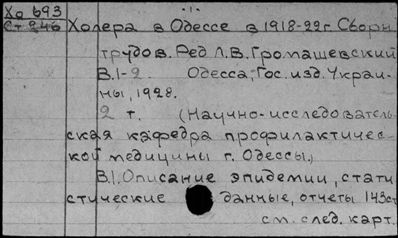 Хо 693
-1-
Ст 246
Холера в Одессе в 1918-22г. Сборн
трудов. Ред Л.В. Громашевский
В.1-2 Одесса, Гос. изд. Украи-
ны, 1928.
2 т. (Научно-исследователь-
ская кафедра профилактичес-
кой медицины г. Одессы.)
В.1. Описание эпидемии, стати
стические данные, отчеты 143ст
см. след. карт.